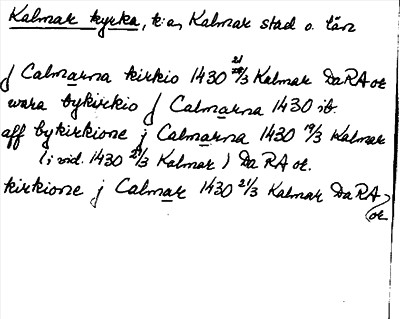 Kalmar kyrka, k:a, Kalmar stad o. län
j Calmarna kirkio 1430 21/3 Kalmar DaRA or
wara bykirkio j Calmarna 1430 ib.
aff bykirkione j Calmarna 1430 19/3 Kalmar
(i vid. 1430 21/3 Kalmar) DaRA or.
kirkione j Calmar 1430 21/3 Kalmar DaRA
or